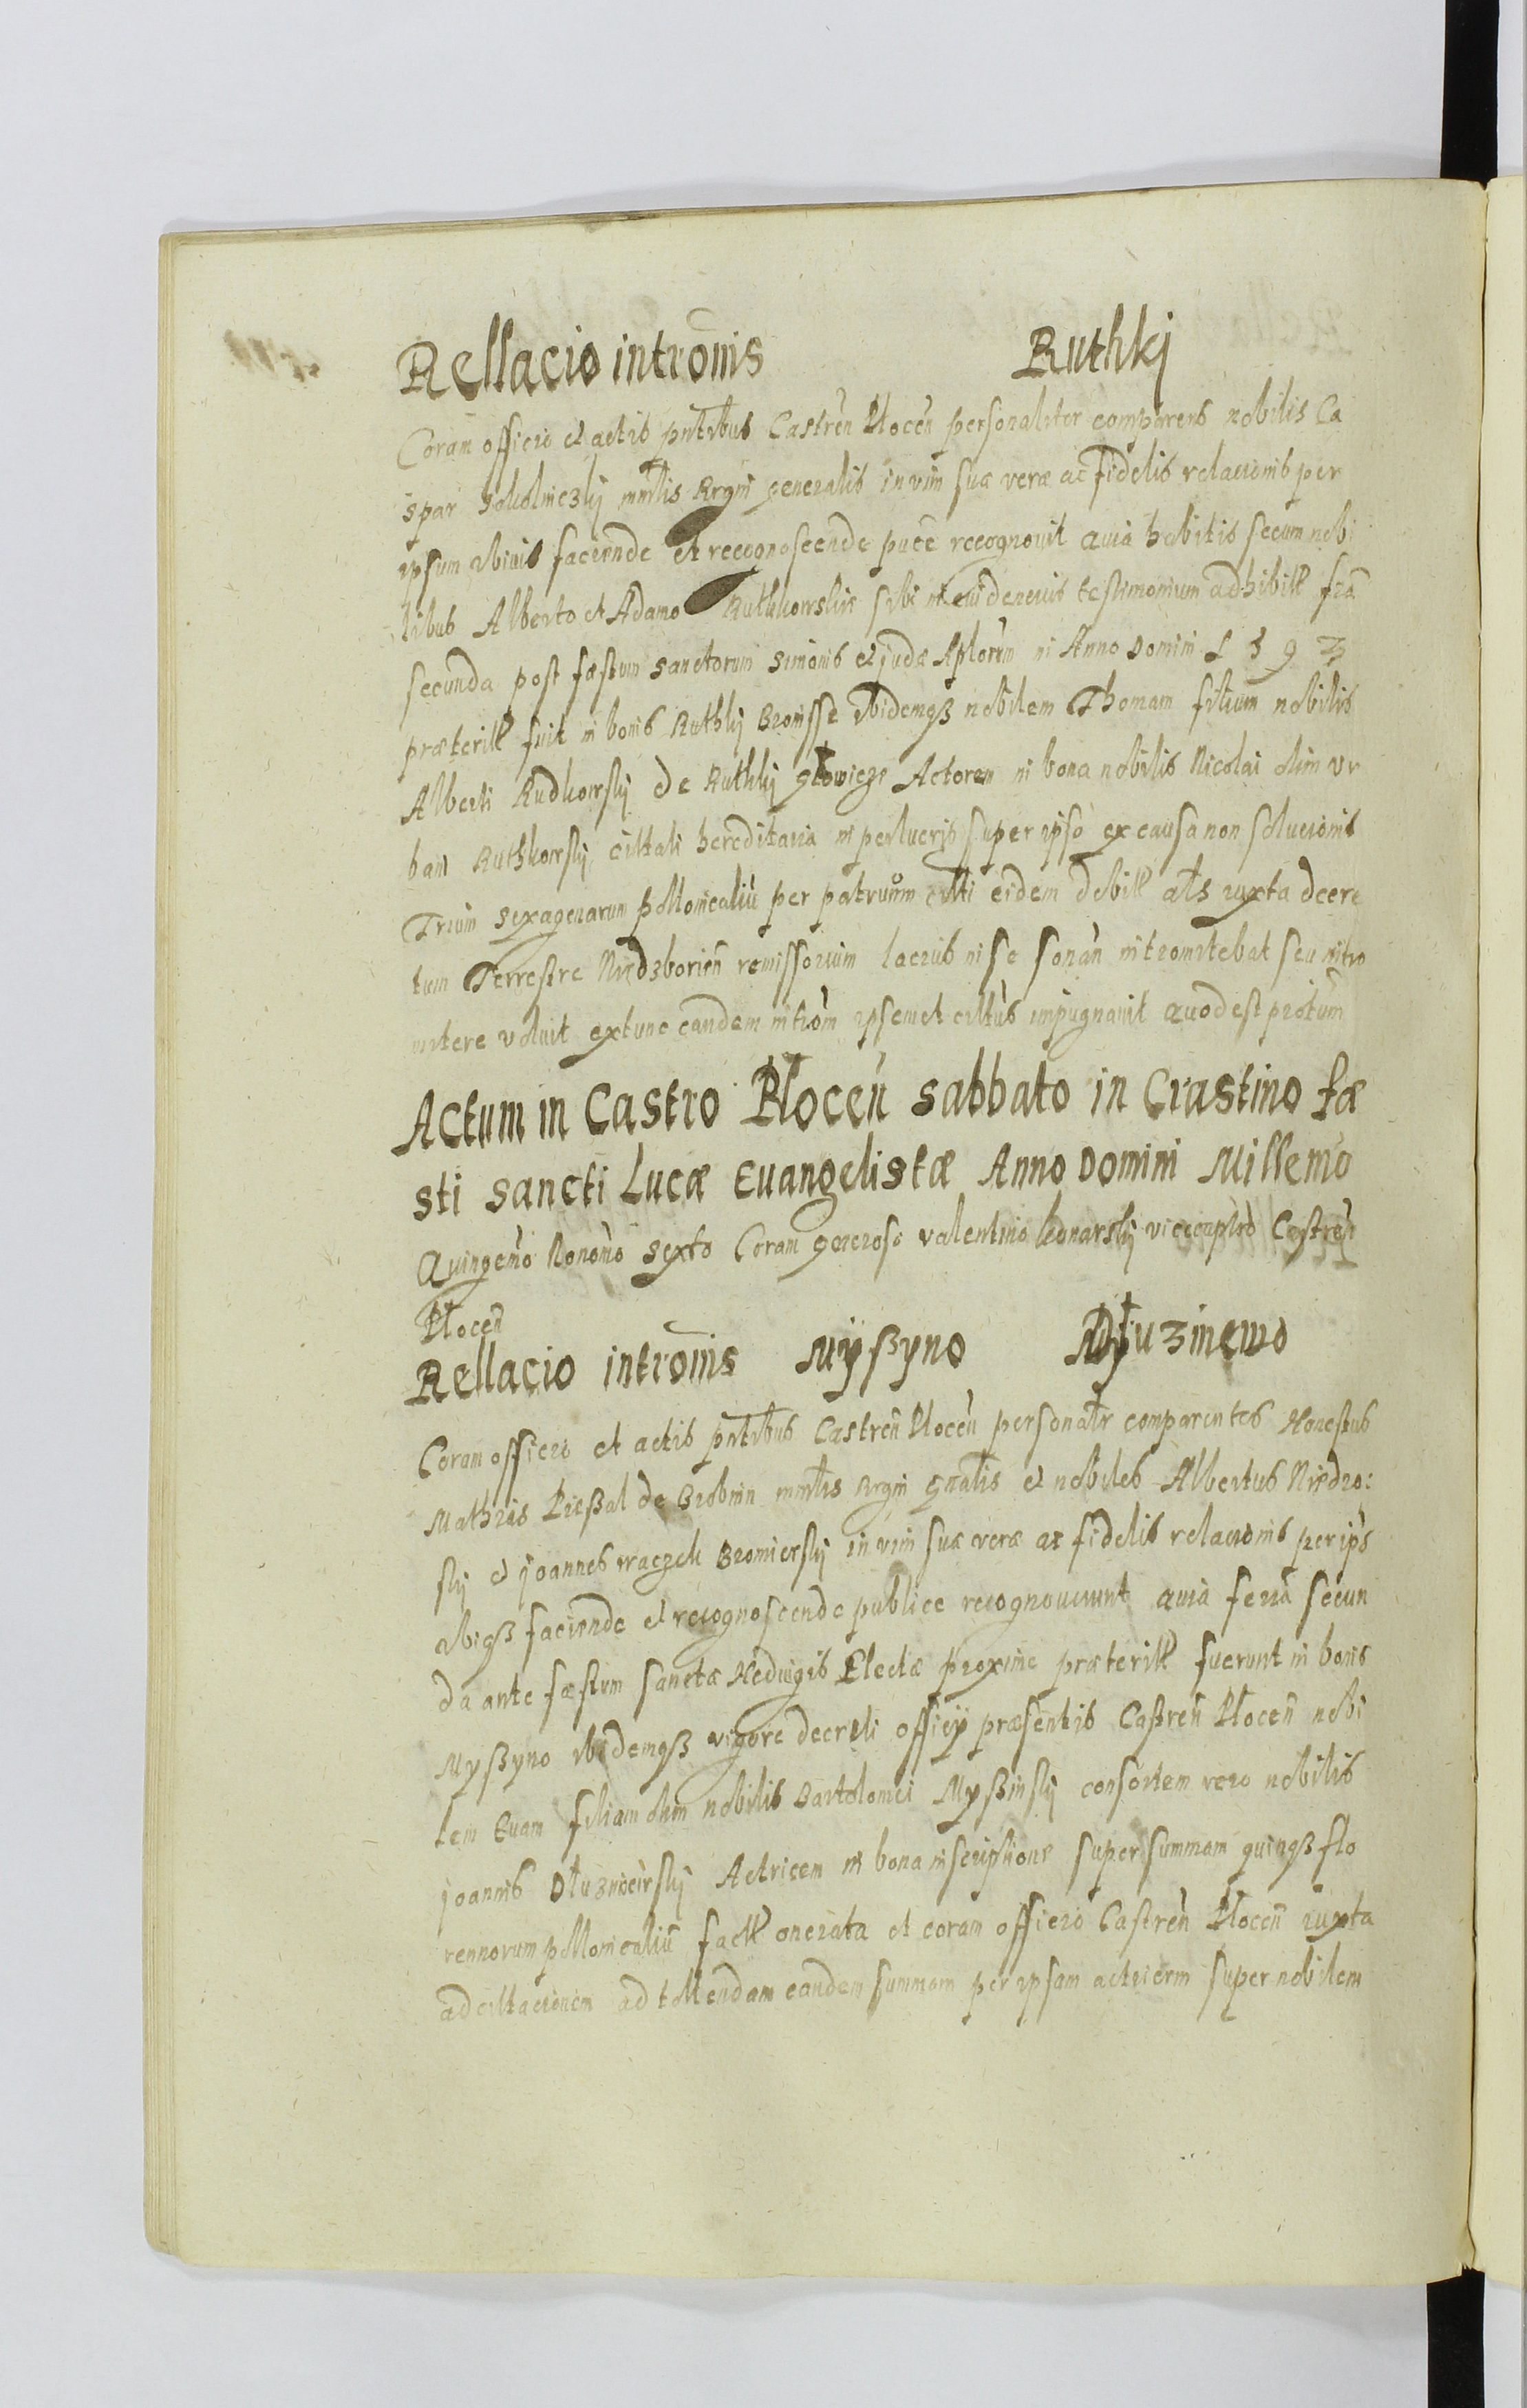 Rellacio intromis Ruthkj
Coram officio et actis pntibus Castren Plocen personaliter comparens nobilis Ca
spar Sokolniczkij mnlis Regni generalis in vim suæ veræ ac fidelis relacionis per
ipsum ibivis faciende et recognoscende puce recognovit quia habitis secum nobi
libus Alberto et Adamo Ruthkowskie sibi in evidencius testimonium adhibitt fria
secunda post fæstum sanctorum Simonis et Judæ Aplorum in Anno Domini 1593
præteritt fuit in bonis Ruthkij Bronisse ibidemqß nobilem Thomam filium nobilis
Alberti Rudkowskij de Ruthkij Głowicze Actorem in bona nobilis Nicolai olim Vr
bani Ruthkowskij cittati hereditaria in perlucris super ipso ex causa non solucionis
Trium sexagenarum pollonicaliu per patruum citti eidem debitt als iuxta decre
tum Terrestre Niedzborien remissorium lacius in se sonan intromitebat seu intro
mitere voluit extunc eandem introm ipsemet cittus impugnavit quod est protum
Actum in Castro Plocen sabbato in Crastino fæ
sti sancti Lucæ Evangelistæ Anno Domini Millemo
Quingemo Nonomo sexto Coram generoso Valentino Konarskij vicecaptno Castren
Plocen
Rellacio intromis Myßyno Dłuzniewo
Coram officio et actis pntibus Castren Plocen personatr comparentes Honestus
Mathias Pießal de Brobnin mnlis Regni gnalis et nobiles Albertus Niedro:
skij et Joannes Wraczek Bromierskij in vim suæ veræ ac fidelis relacionis per ips
ibiqß faciende et recognoscende publice recognoverunt quia feria secun
da ante fæstum sanctæ Hedvigis Electæ proxime præteritt fuerunt in bonis
Myßyno ibidemqß vigore decreti officij præsentis Castren Plocen nobi
lem Evam filiam olim nobilis Bartolomei Myßinskij consortem vero nobilis
Joannis Dłuzniewskij Actricem in bona inscriptione super summam quinqß flo
rennorum pollonicaliu factt onerata et coram officio Castren Plocen iuxta
adcittacionem ad tollendam eandem summam per ipsam actricem super nobilem